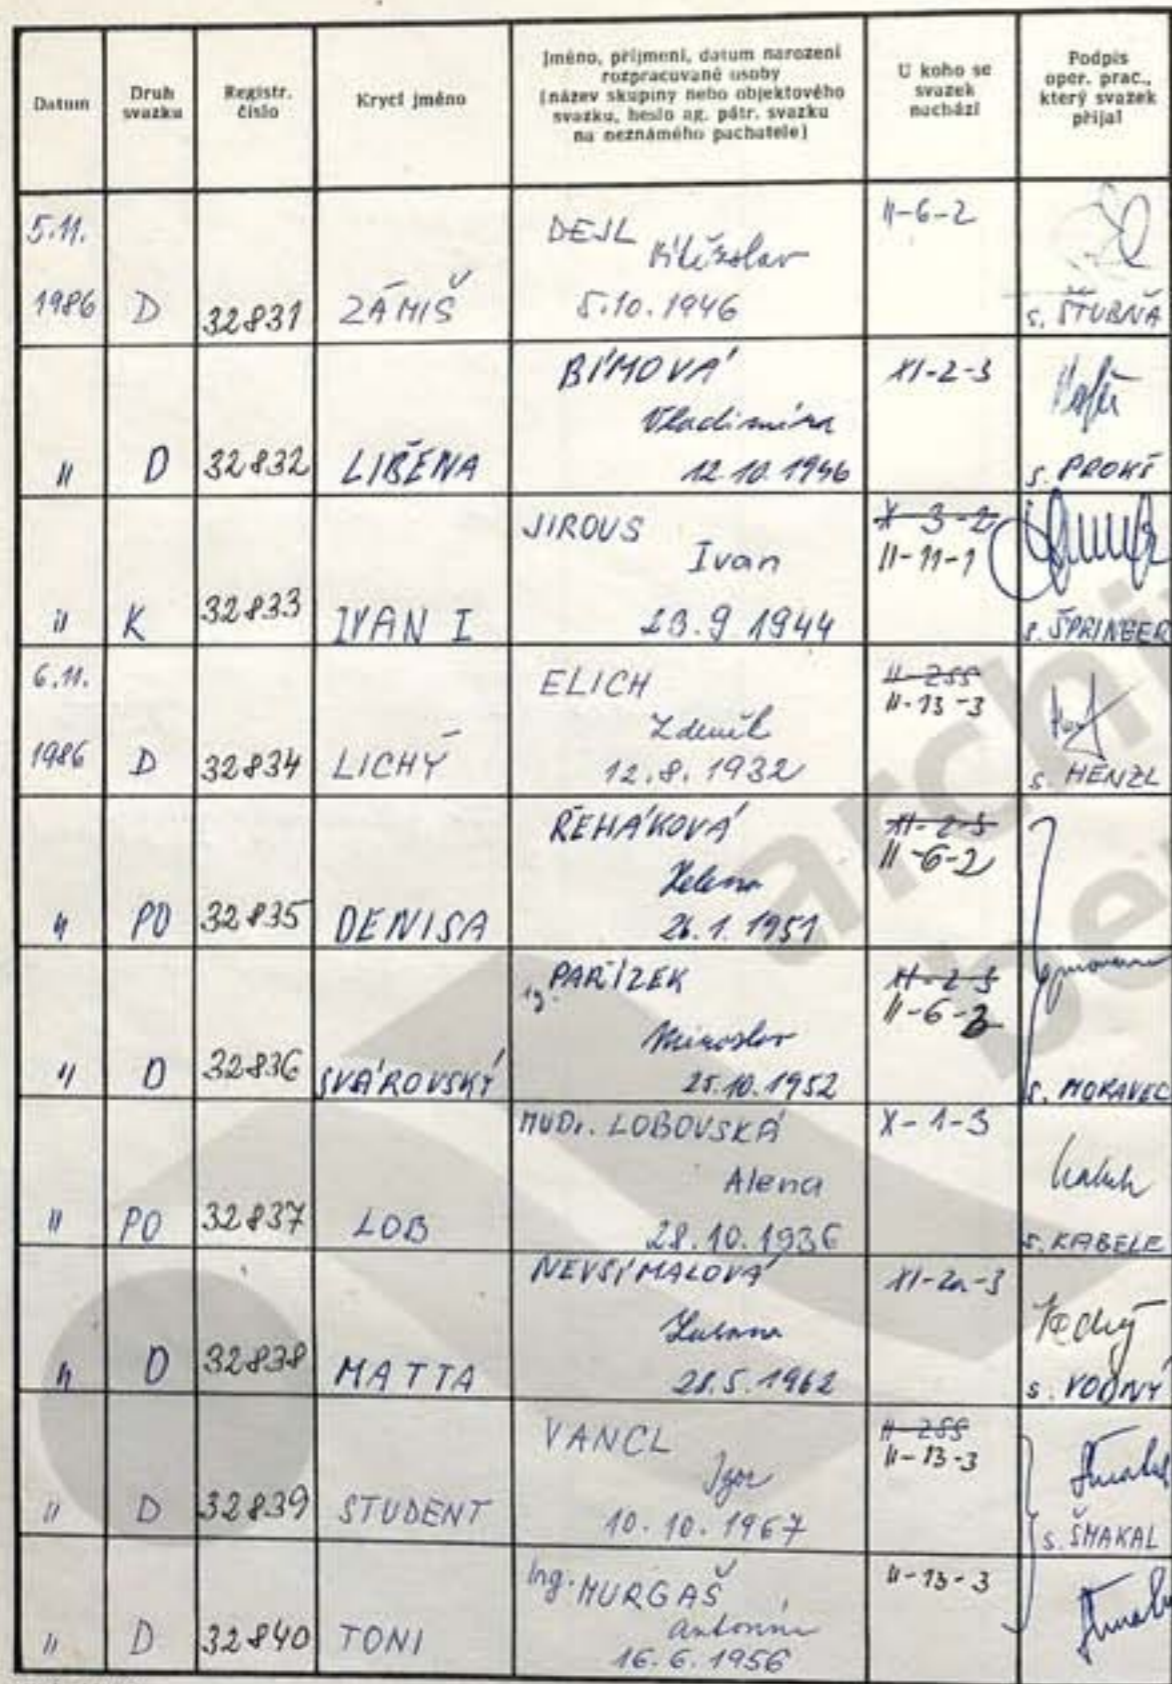 Datum
Druh
svazku
Registr.
číslo
Krycí jméno
Jméno, příjmení, datum narození
rozpracované osoby
(název skupiny nebo objektového
svazku, heslo ag. pátr. svazku
na neznámého pachatele)
U koho se
svazek
nachází
Podpis
oper. prac.,
který svazek
přijal
5.11.
1986 D 32831 ZÁMIŠ
DEJL
Vítězslav
5.10.1946
II-6-2
s. ŠTUBŇA
" D 32832 LIBĚNA
BÍMOVÁ
Vladimíra
12.10.1946
XI-2-3
s. PROKŠ
" K 32833 IVAN I
JIROUS
Ivan
23.9 1944
X-3-2
II-11-1
s. ŠPRINGER
6.11.
1986 D 32834 LICHÝ
ELICH
Zdeněk
12.8.1932
II-255
II-13-3
s. HENZL
" PO 32835 DENISA
ŘEHÁKOVÁ
Helena
26.1.1951
XI-2-3
II-6-2
" D 32836 SVÁROVSKÝ
Ing. PAŘÍZEK
Miroslav
25.10.1952
XI-2-3
II-6-2
s. MORAVEC
" PO 32837 LOB
MUDr. LOBOVSKÁ
Alena
28.10.1936
X-1-3
s. KABELE
" D 32838 MATTA
NEVŠÍMALOVÁ
28.5.1962
XI-2a-3
s. VODNÝ
" D 32839 STUDENT
VANCL
Igor
10.10.1967
II-255
II-13-3
s. ŠMAKAL
" D 32840 TONI
Ing. MURGAŠ
Antonín
16.6.1956
II-13-3